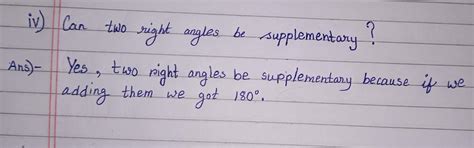 iv) Can two right angles be supplementary?
Ans)- Yes, two right angles be supplementary because if we
adding them we got 180°.